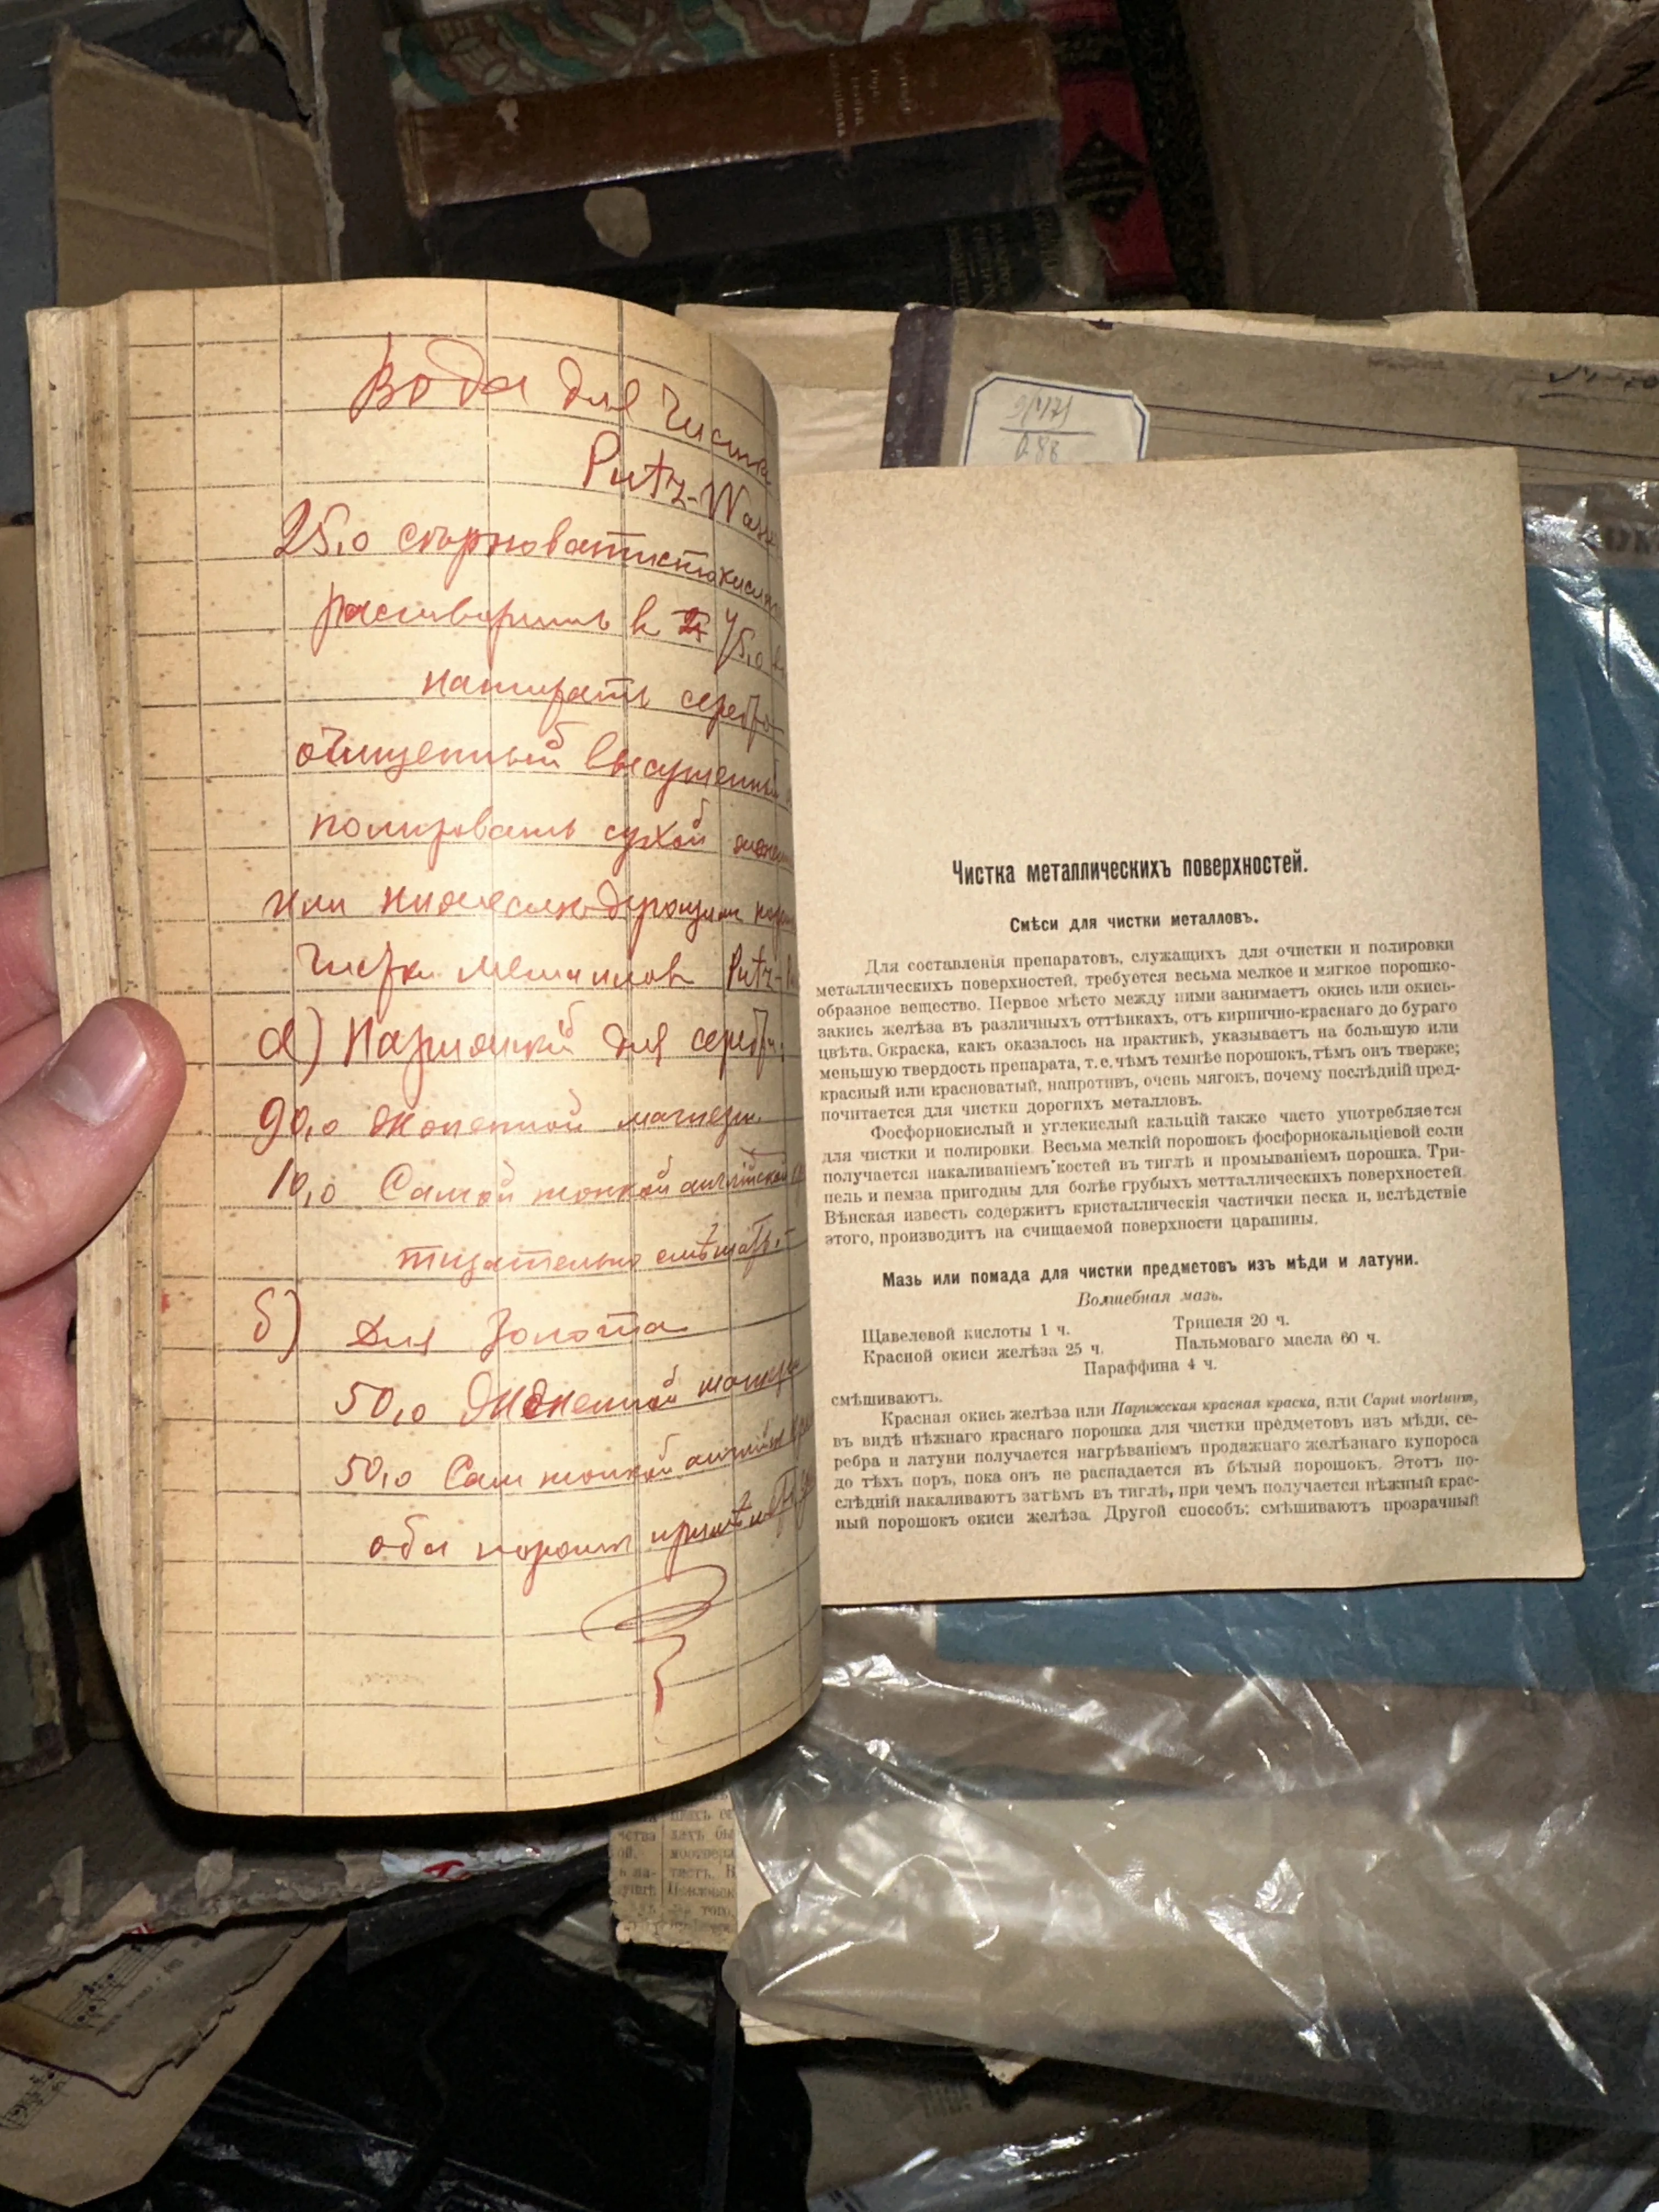 Вода для чистк
Putz-Wass
25,0 сѣрноватистокисл
растворить в 75,0
натирать серебро
очищенный высушенный
полировать сухой
или
чистки металлов Putz-
а) Парижский для серебр
90,0 жженной магнези
10,0 Самой тонкой английской
тщательно смѣшать
б) Для Золота
50,0 жженной магнез
50,0 Сам тонкой английск
оба порошк
Чистка металлическихъ поверхностей.
Смѣси для чистки металловъ.
Для составленія препаратовъ, служащихъ для очистки и полировки
металлическихъ поверхностей, требуется весьма мелкое и мягкое порошко-
образное вещество. Первое мѣсто между ними занимаетъ окись или окись-
закись желѣза въ различныхъ оттѣнкахъ, отъ кирпично-краснаго до бураго
цвѣта. Окраска, какъ оказалось на практикѣ, указываетъ на большую или
меньшую твердость препарата, т. е. чѣмъ темнѣе порошокъ, тѣмъ онъ тверже;
красный или красноватый, напротивъ, очень мягокъ, почему послѣдній пред-
почитается для чистки дорогихъ металловъ.
Фосфорнокислый и углекислый кальцій также часто употребляется
для чистки и полировки. Весьма мелкій порошокъ фосфорнокальціевой соли
получается накаливаніемъ костей въ тиглѣ и промываніемъ порошка. Три-
пель и пемза пригодны для болѣе грубыхъ метталлическихъ поверхностей.
Вѣнская известь содержитъ кристаллическія частички песка и, вслѣдствіе
этого, производитъ на счищаемой поверхности царапины.
Мазь или помада для чистки предметовъ изъ мѣди и латуни.
Волшебная мазь.
Щавелевой кислоты 1 ч. Трипеля 20 ч.
Красной окиси желѣза 25 ч. Пальмоваго масла 60 ч.
Параффина 4 ч.
смѣшиваютъ.
Красная окись желѣза или Парижская красная краска, или Caput mortuum,
въ видѣ нѣжнаго краснаго порошка для чистки предметовъ изъ мѣди, се-
ребра и латуни получается нагрѣваніемъ продажнаго желѣзнаго купороса
до тѣхъ поръ, пока онъ не распадается въ бѣлый порошокъ. Этотъ по-
слѣдній накаливаютъ затѣмъ въ тиглѣ, при чемъ получается нѣжный крас-
ный порошокъ окиси желѣза. Другой способъ: смѣшиваютъ прозрачный